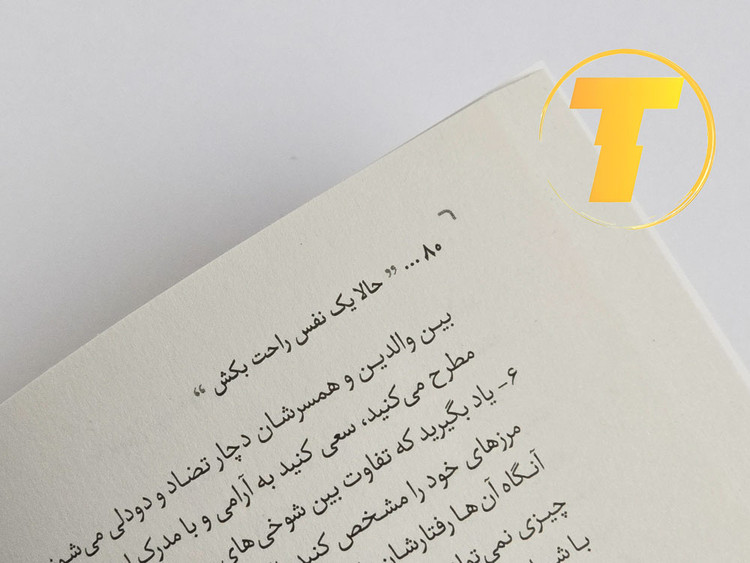 ۸۰ ... » حالا یک نفس راحت بکش «
بین والدین و همسرشان دچار تضاد و دودلی می‌شو
مطرح می‌کنید، سعی کنید به آرامی و با مدرک
۶- یاد بگیرید که تفاوت بین شوخی‌های
مرزهای خود را مشخص کنید
آنگاه آن‌ها رفتارشان
چیزی نمی‌توا
با
T